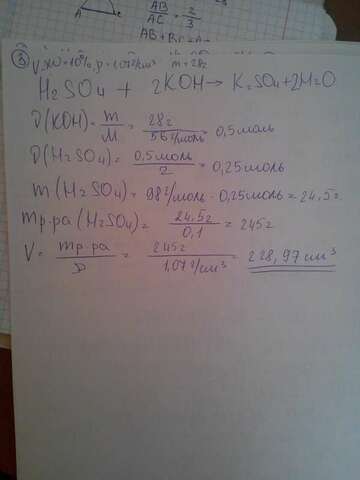 A C
AB/AC = 2/3
③ V; ω=10%, ρ=1,07г/см³ m=28г
H₂SO₄ + 2KOH → K₂SO₄+2H₂O
ν(KOH)= m/M = 28г/56г/моль = 0,5моль
ν(H₂SO₄)= 0,5моль/2 = 0,25моль
m(H₂SO₄)=98г/моль · 0,25моль=24,5г
mр-ра(H₂SO₄)= 24,5г/0,1 = 245г
V= mр-ра/ρ = 245г/1,07г/см³ = 228,97см³